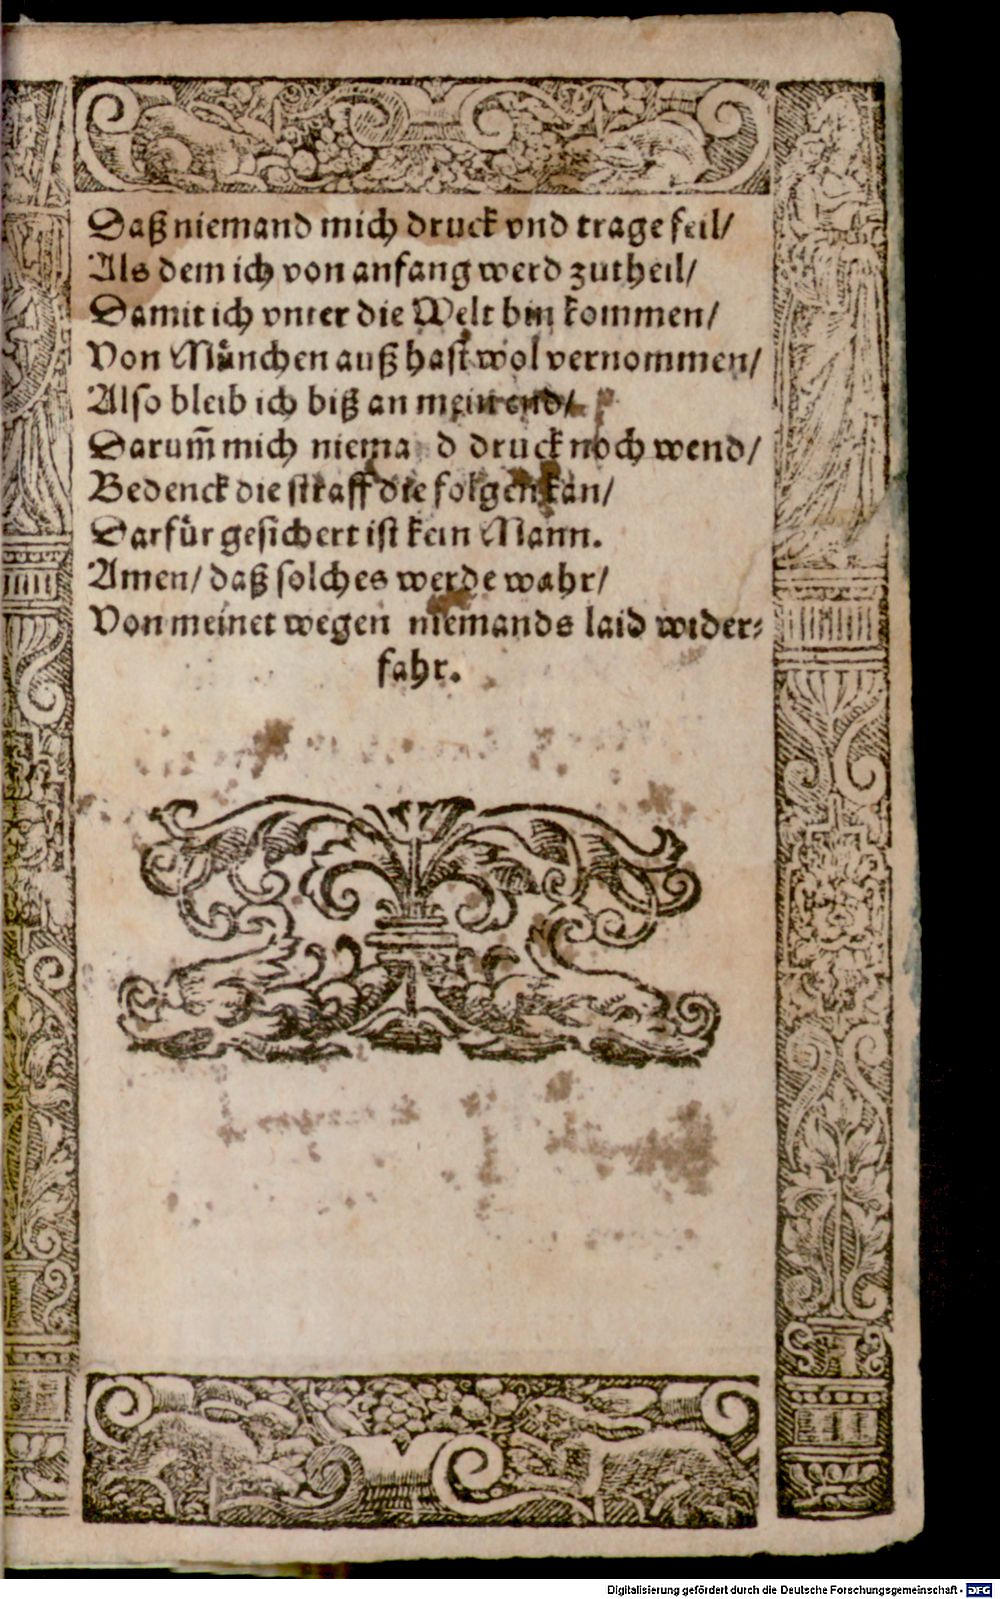 Daß niemand mich druck vnd trage feil/
Als dem ich von anfang werd zutheil/
Damit ich vnter die Welt bin kommen/
Von Muͤnchen auß hast wol vernommen/
Also bleib ich biß an mein end/
Darum̃ mich niemand druck noch wend/
Bedenck die straff die folgen kan/
Darfuͤr gesichert ist kein Mann.
Amen/ daß solches werde wahr/
Von meinet wegen niemands laid wider⸗
fahr.
Digitalisierung gefördert durch die Deutsche Forschungsgemeinschaft - DFG